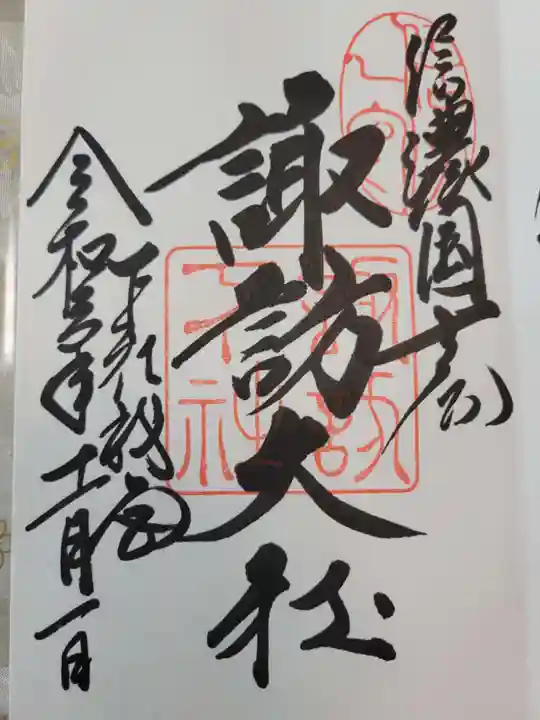 信濃國一之宮
諏訪大社
下社秋宮
令和三年十二月一日